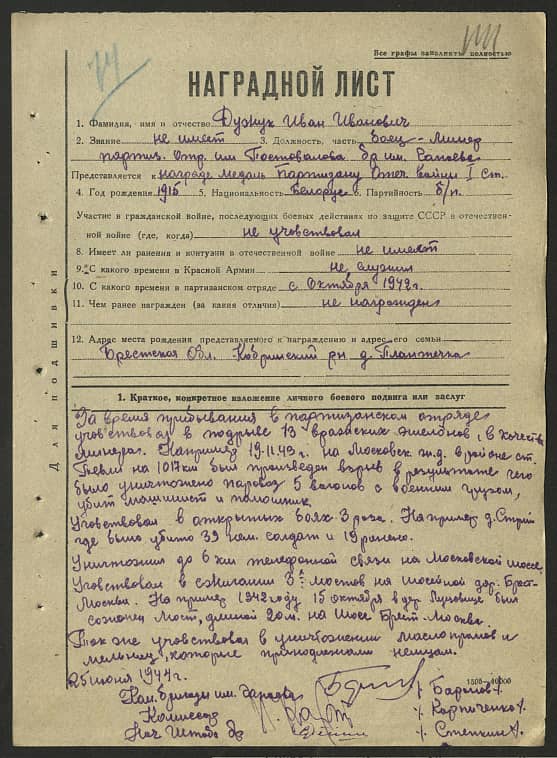 Все графы заполнять полностью
НАГРАДНОЙ ЛИСТ
1. Фамилия, имя и отчество Дужук Иван Иванович
2. Звание не имеет 3. Должность, часть Боец-Минер
партиз. Отр. им Постовалова бр им.
Представляется к награде медаль Партизану Отеч. войны I ст.
4. Год рождения 1915 5. Национальность Белорус 6. Партийность б/п.
Участие в гражданской войне, последующих боевых действиях по защите СССР и отечествен-
ной войне (где, когда) не учовствовал
8. Имеет ли ранения и контузии в отечественной войне не имеет
9. С какого времени в Красной Армии не служил
10. С какого времени в партизанском отряде с Октября 1942 г.
11. Чем ранее награжден (за какия отличия) не награжден
12. Адрес места рождения представляемого к награждению и адрес его семьи
Брестская Обл. Кобринский рн д.
Для подшивки
1. Краткое, конкретное изложение личного боевого подвига или заслуг
За время прибывания в партизанском отряде
учовствовал в подрыве 13 вражских эшелонов, в качестве
минера. Например 19.11.43 г. на Московск ж.д. в районе ст.
на 1017 км был произведен взрыв в результате чего
было уничтожено паровоз 5 вагонов с военним грузом,
убит машинист и помошник
Учовствовал в открытых боях 3 раза. Например д.
где было убито 39 нем. солдат и 19 ранено.
Уничтожил до 6 км телефонной связи на Московской шоссе
Учовствовал в сжигании 3х мостов на шосейной дор. Брест-
Москва. На пример 1942 году 15 октября в дер. был
сожжен мост, длиной 20 м. на шосе Брест. Москва.
Так же учовствовал в уничтожении маслопромов и
мельниц, которые принодлежали немцам.
25 июня 1944 г.
1508—10000
Ком. бригады им.
Комиссар
Нач Штаба бр
/ Баранов /
/ Карпиченко /
/ Степкин /